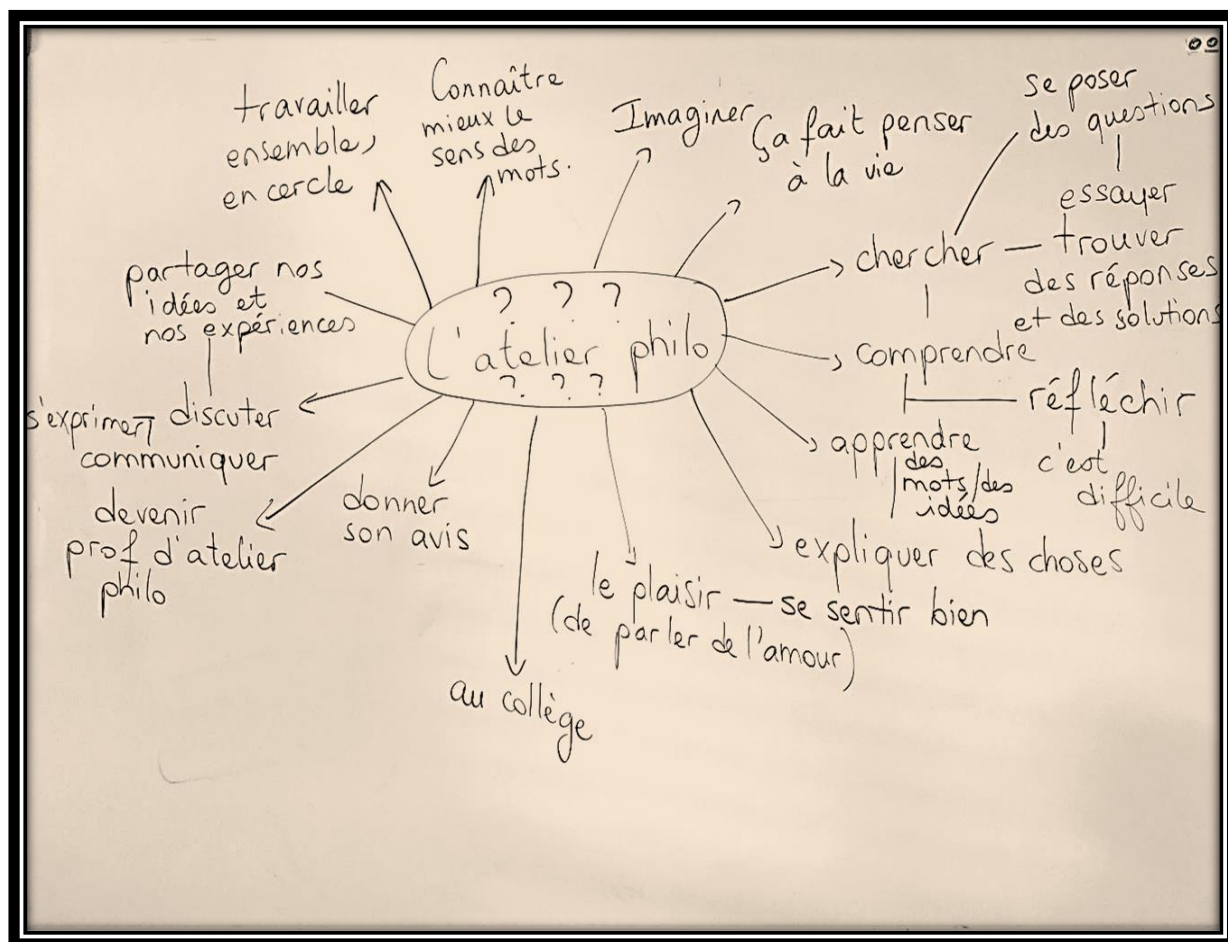 travailler
ensemble,
en cercle
Connaître
mieux le
sens des
mots.
Imaginer
Ça fait penser
à la vie
se poser
des questions
essayer
chercher — trouver
des réponses
et des solutions
comprendre
réfléchir
c'est
difficile
apprendre
des
mots/des
idées
expliquer des choses
le plaisir — se sentir bien
(de parler de l'amour)
au collège
donner
son avis
devenir
prof d'atelier
philo
s'exprimer discuter
communiquer
partager nos
idées et
nos expériences
? ? ?
L'atelier philo
? ? ?